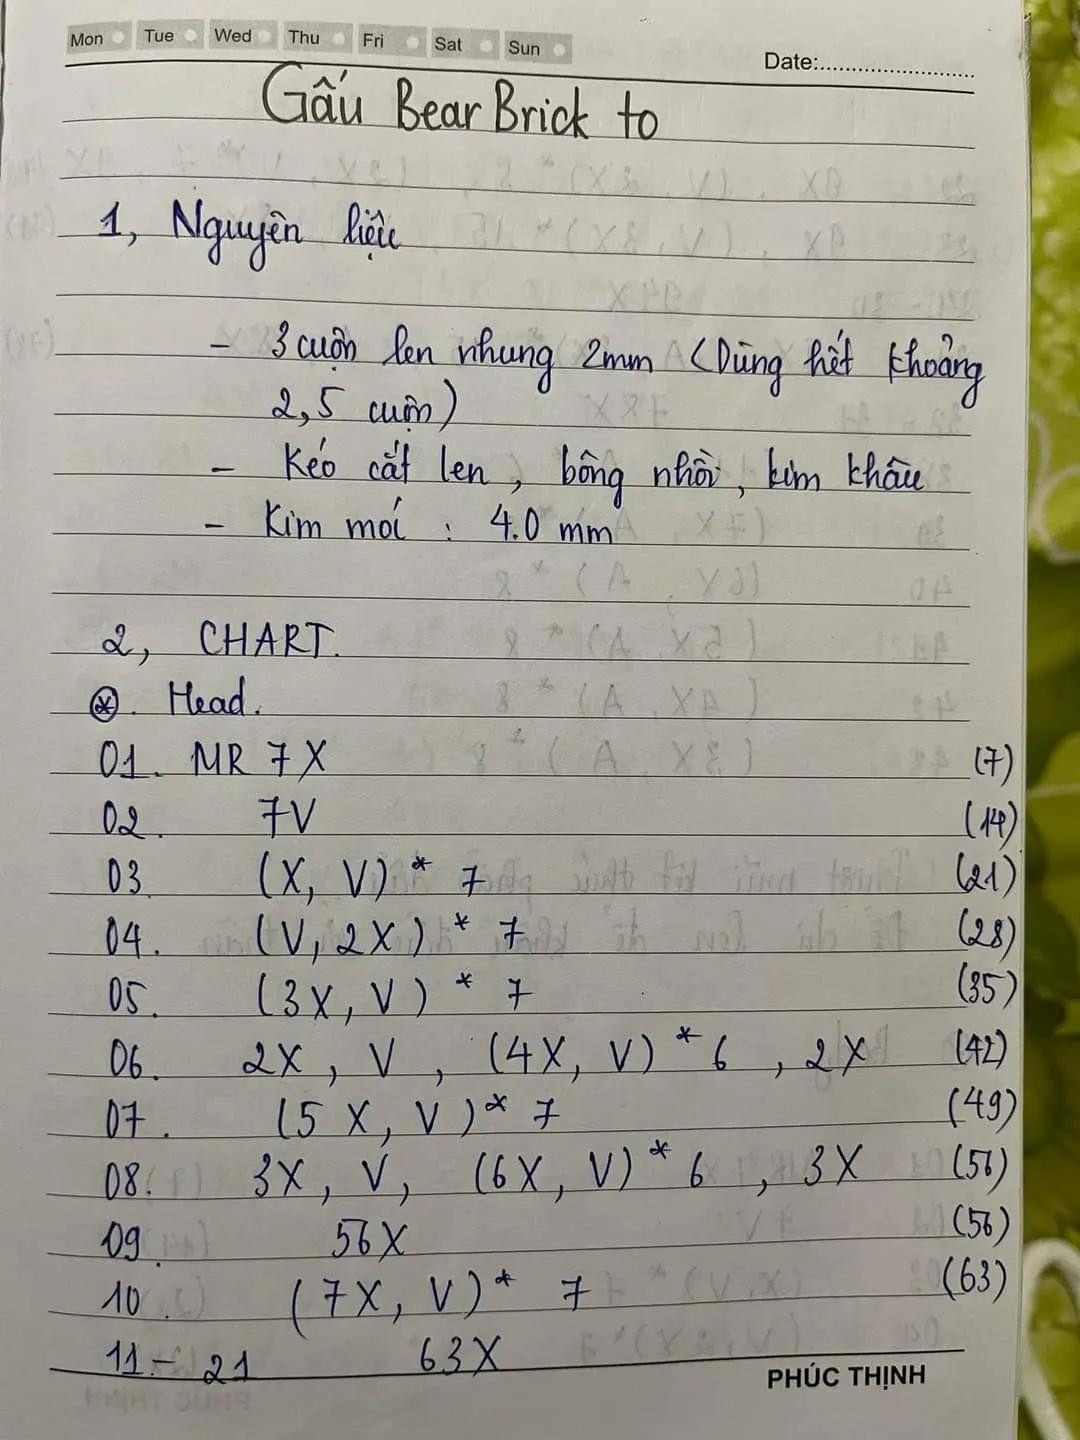 Mon Tue Wed Thu Fri Sat Sun
Date:........................
Gấu BearBrick to
1, Nguyên liệu
- 3 cuộn len nhung 2mm (Dùng hết khoảng
2,5 cuộn)
- Kéo cắt len, bông nhồi, kim khâu
- Kim móc : 4.0 mm
2, CHART.
* . Head.
01. MR 7X (7)
02. 7V (14)
03 (X, V) * 7 (21)
04. (V, 2X) * 7 (28)
05. (3X, V) * 7 (35)
06. 2X, V, (4X, V) * 6, 2X (42)
07. (5X, V) * 7 (49)
08. 3X, V, (6X, V) * 6, 3X (56)
09. 56X (56)
10. (7X, V) * 7 (63)
11 - 21 63X
PHÚC THỊNH